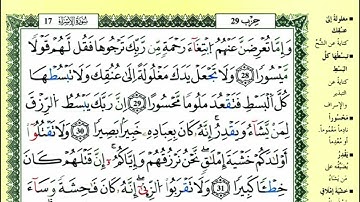 17 سُورَةُ الإِسْرَاءِ حِزْب 29
وَإِمَّا تُعْرِضَنَّ عَنْهُمُ ابْتِغَاءَ رَحْمَةٍ مِّن رَّبِّكَ تَرْجُوهَا فَقُل لَّهُمْ قَوْلًا
مَّيْسُورًا 28 وَلَا تَجْعَلْ يَدَكَ مَغْلُولَةً إِلَىٰ عُنُقِكَ وَلَا تَبْسُطْهَا
كُلَّ الْبَسْطِ فَتَقْعُدَ مَلُومًا مَّحْسُورًا 29 إِنَّ رَبَّكَ يَبْسُطُ الرِّزْقَ
لِمَن يَشَاءُ وَيَقْدِرُ إِنَّهُ كَانَ بِعِبَادِهِ خَبِيرًا بَصِيرًا 30 وَلَا تَقْتُلُوا
أَوْلَٰدَكُمْ خَشْيَةَ إِمْلَٰقٍ نَّحْنُ نَرْزُقُهُمْ وَإِيَّاكُمْ إِنَّ قَتْلَهُمْ كَانَ
خِطْـًٔا كَبِيرًا 31 وَلَا تَقْرَبُوا الزِّنَىٰ إِنَّهُ كَانَ فَٰحِشَةً وَسَاءَ
مَغْلُولَةً إِلَىٰ
عُنُقِكَ
كناية عن الشُّحّ
تَبْسُطْهَا كُلَّ
الْبَسْطِ
كناية عن
التبذير
والإسراف
مَّحْسُورًا
نادماً مغموماً
أو مُعْدِماً
يَقْدِرُ
خَشْيَةَ إِمْلَٰقٍ